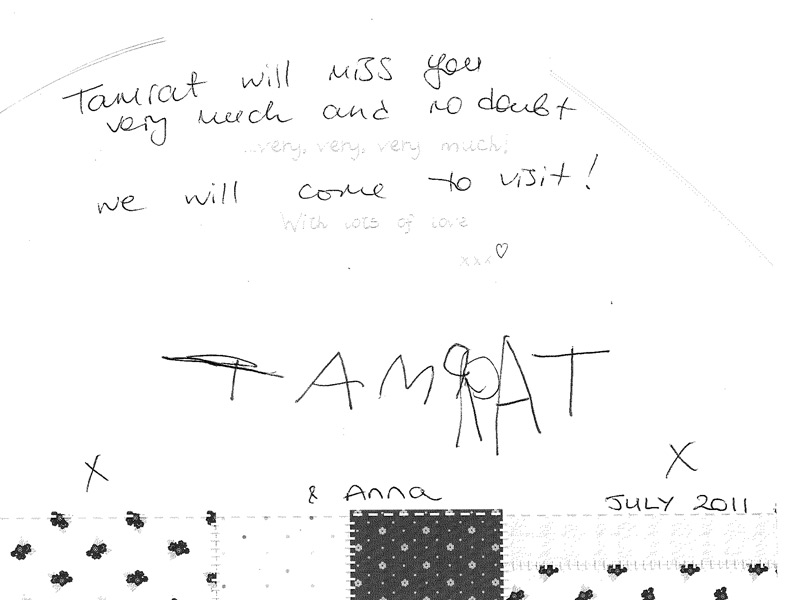 Tamrat will miss you
very much and no doubt
...very, very, very much!
we will come to visit!
With lots of love
xxx♡
TAMRAT
X X
& Anna
JULY 2011